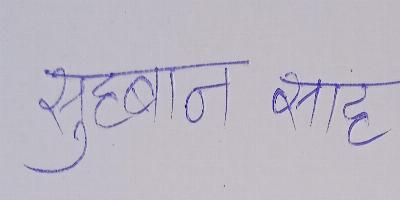 सुहबान साह